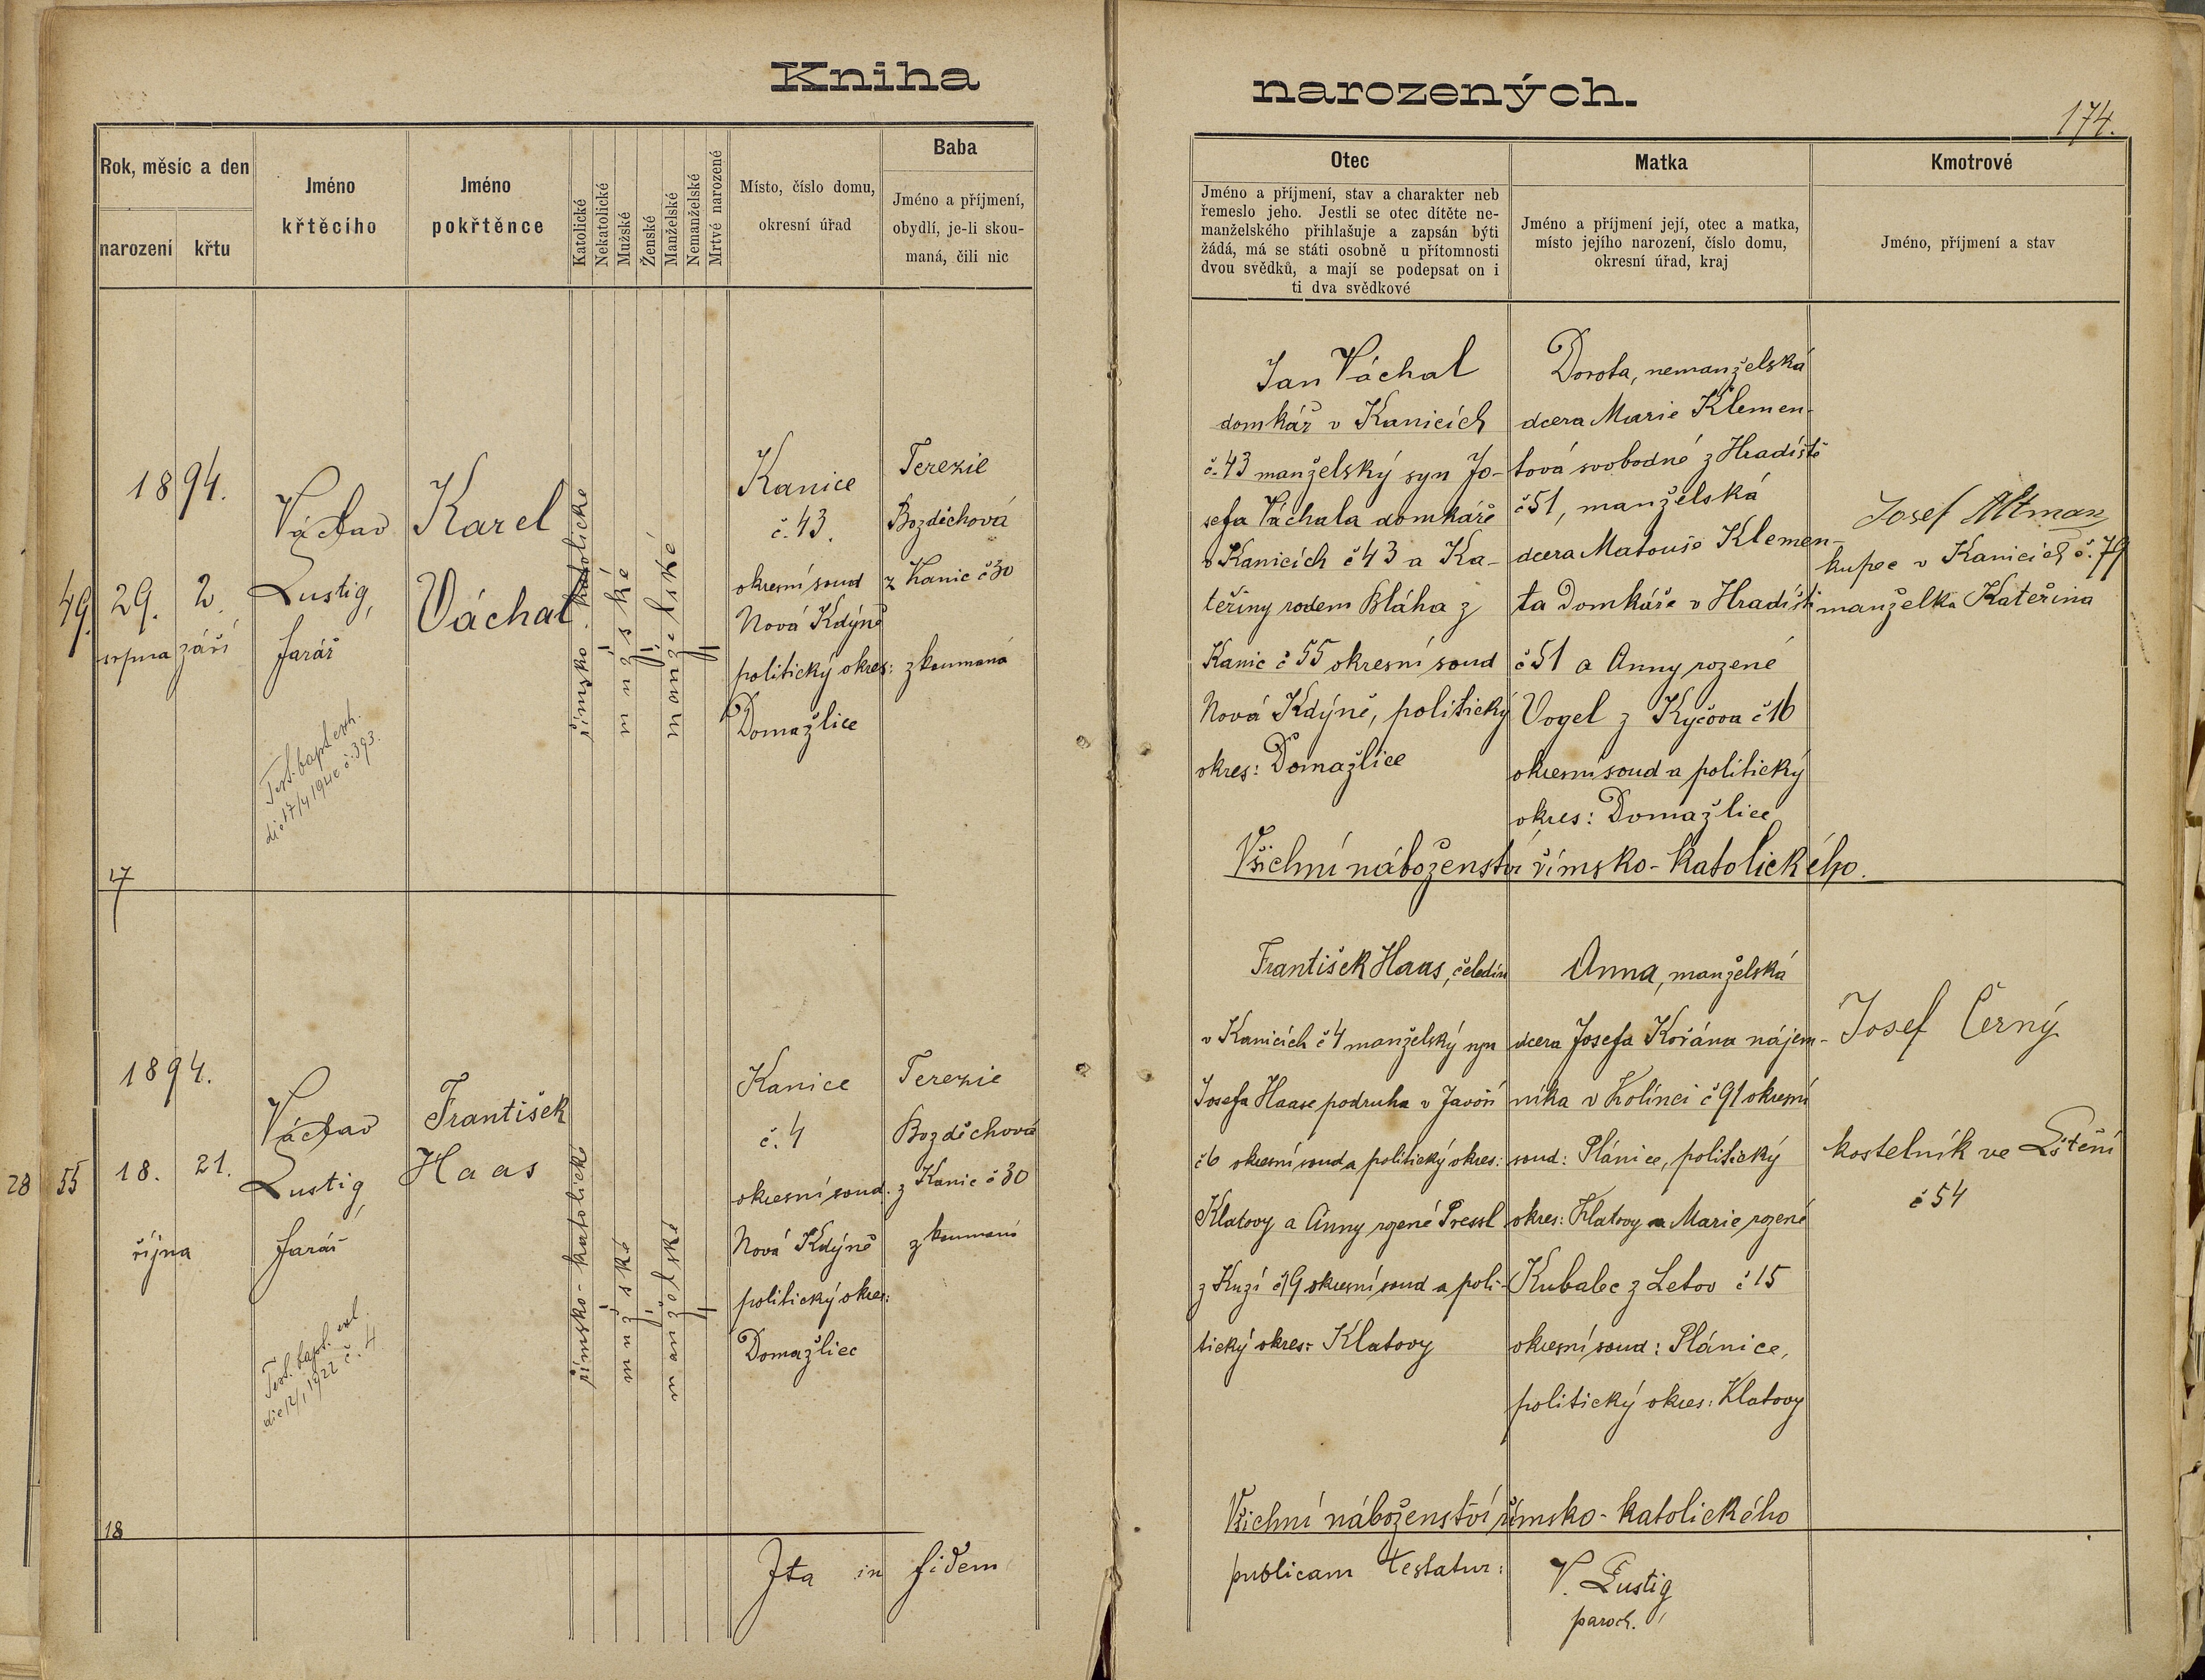 Kniha
narozených.
174.
Rok, měsíc a den
narození
křtu
Jméno
křtěcího
Jméno
pokřtěnce
Katolické
Nekatolické
Mužské
Ženské
Manželské
Nemanželské
Mrtvě narozené
Místo, číslo domu,
okresní úřad
Baba
Jméno a příjmení,
obydlí, je-li skou-
maná, čili nic
Otec
Jméno a příjmení, stav a charakter neb
řemeslo jeho. Jestli se otec dítěte ne-
manželského přihlašuje a zapsán býti
žádá, má se státi osobně u přítomnosti
dvou svědků, a mají se podepsat on i
ti dva svědkové
Matka
Jméno a příjmení její, otec a matka,
místo jejího narození, číslo domu,
okresní úřad, kraj
Kmotrové
Jméno, příjmení a stav
49.
1894.
29. 2.
srpna září
Václav
Lustig,
farář
Test. bapt. exh.
die 17/4 192 č. 393.
Karel
Váchal
římsko-katolické
mužské
manželské
Kanice
č. 43.
okresní soud
Nová Kdýně
politický okres:
Domažlice
Terezie
Bozděchová
z Kanic č 30
zkoumaná
Jan Váchal
domkář v Kanicích
č. 43 manželský syn Jo-
sefa Váchala domkáře
v Kanicích č 43 a Ka-
teřiny rodem Bláha z
Kanic č 55 okresní soud
Nová Kdýně, politický
okres: Domažlice
Dorota, nemanželská
dcera Marie Klemen-
tová svobodné z Hradiště
č 51, manželská
dcera Matouše Klemen-
ta Domkáře v Hradišti
č 51 a Anny rozené
Vogel z Kyčova č 16
okresní soud a politický
okres: Domažlice
Josef Altman
kupec v Kanicích č. 79
manželka Kateřina
Všichni náboženství římsko-katolického.
17
28 55
1894.
18. 21.
října
Václav
Lustig,
farář
Test. bapt. exh.
die 12/1 1922 č. 4
František
Haas
římsko-katolické
mužské
manželské
Kanice
č. 4
okresní soud.
Nová Kdýně
politický okres:
Domažlice
Terezie
Bozděchová
z Kanic č 30
zkoumaná
František Haas, čeledín
v Kanicích č 4 manželský syn
Josefa Haase podruha v Javoří
č 6 okresní soud a politický okres:
Klatovy a Anny rozené Pressl
z Kuzí č 19 okresní soud a poli-
tický okres: Klatovy
Anna, manželská
dcera Josefa Kořána nájem-
níka v Kolinci č 91 okresní
soud: Plánice, politický
okres: Klatovy a Marie rozené
Kubalec z Letov č 15
okresní soud: Plánice,
politický okres: Klatovy
Josef Černý
kostelník ve Štění
č 54
Všichni náboženství římsko-katolického
18
Ita in fidem
publicam testatur:
V. Lustig
paroch.